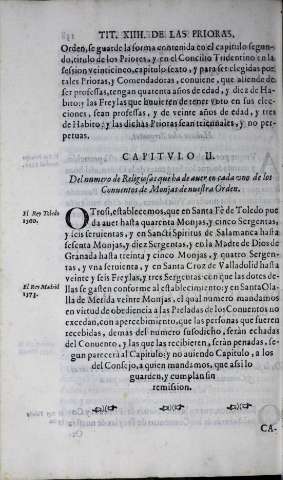 TIT. XIIII. DE LAS PRIORAS,
Orden, se guarde la forma contenida en el capitulo segun-
do, titulo de los Priores, y en el Concilio Tridentino en la
session veinticinco, capitulo sexto, y para ser elegidas por
tales Prioras, y Comendadoras, conuiene, que aliende de
ser professas, tengan quarenta años de edad, y diez de Ha-
bito: y las Freylas que huuieren de tener voto en sus elec-
ciones, sean professas, y de veinte años de edad, y tres
de Habito: y las dichas Prioras sean trienales, y no per-
petuas.
CAPITVLO II.
Del numero de Religiosas que ha de auer en cada vno de los
Conuentos de Monjas de nuestra Orden.
El Rey Toledo
1560.
OTrosi, establecemos, que en Santa Fè de Toledo pue
da auer hasta quarenta Monjas, y cinco Sergentas,
y seis seruientas, y en Sancti Spiritus de Salamanca hasta
sesenta Monjas, y diez Sergentas, y en la Madre de Dios de
Granada hasta treinta y cinco Monjas, y quatro Sergen-
tas, y vna seruienta, y en Santa Cruz de Valladolid hasta
veinte y seis Freylas, y tres Sergentas con que las dotes de-
llas se gasten conforme al establecimiento: y en Santa Ola-
lla de Merida veinte Monjas, el qual numero mandamos
en virtud de obediencia a las Preladas de los Conuentos no
excedan, con apercebimiento, que las personas que fueren
recebidas, demas del numero susodicho, seràn echadas
del Conuento, y las que las recibieren, seràn penadas, se-
gun parecerà al Capitulo: y no auiendo Capitulo, a los
del Consejo, a quien mandamos, que assi lo
guarden, y cumplan sin
remission.
El Rey Madrid
1573.
CA-